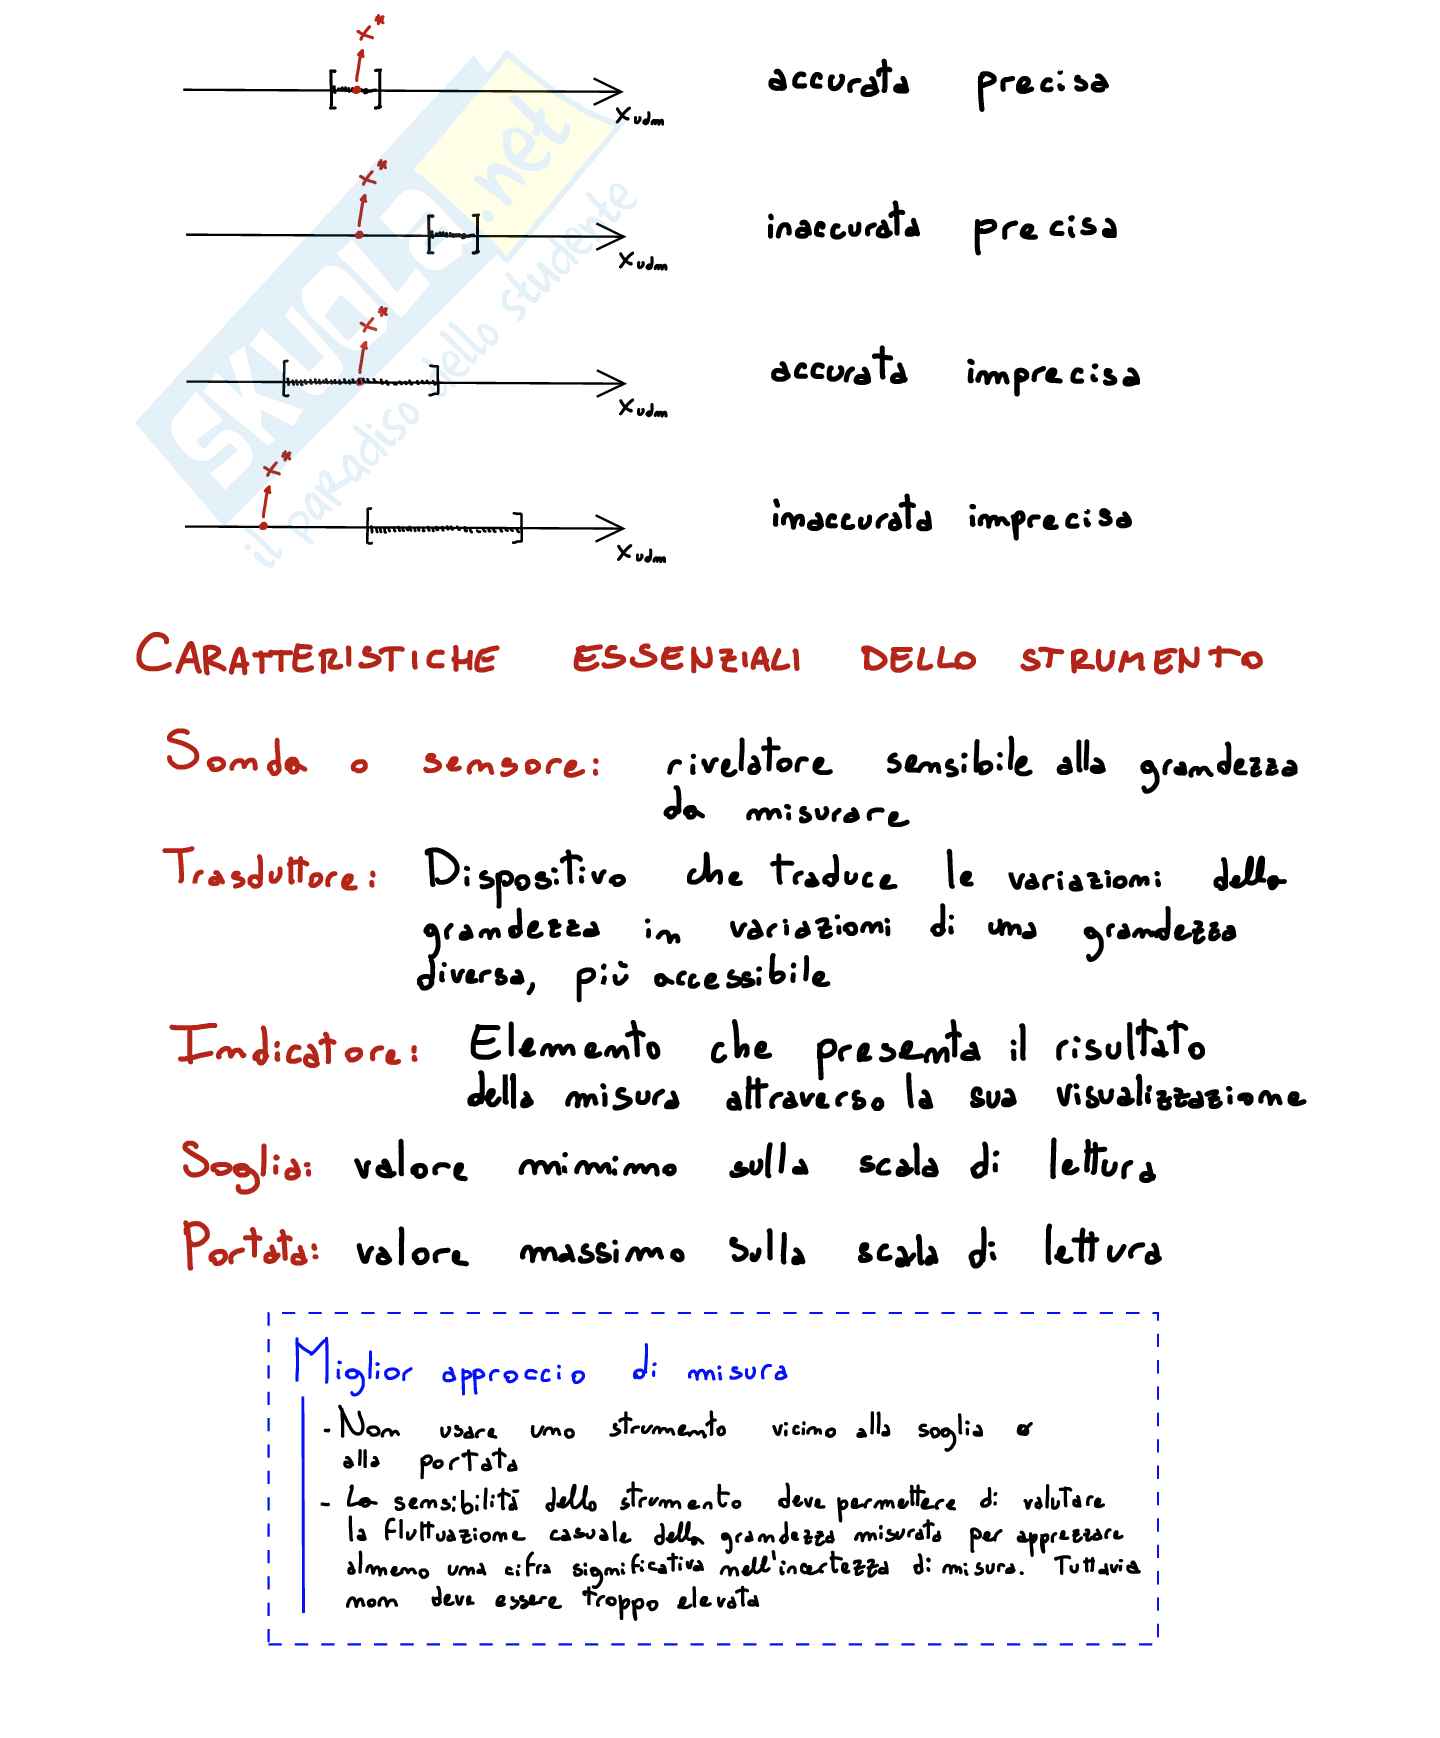 x*
x udm
accurata precisa
x*
x udm
inaccurata precisa
x*
x udm
accurata imprecisa
x*
x udm
inaccurata imprecisa
SKUOLA.net
il paradiso dello studente
CARATTERISTICHE ESSENZIALI DELLO STRUMENTO
Sonda o sensore: rivelatore sensibile alla grandezza
da misurare
Trasduttore: Dispositivo che traduce le variazioni della
grandezza in variazioni di una grandezza
diversa, più accessibile
Indicatore: Elemento che presenta il risultato
della misura attraverso la sua visualizzazione
Soglia: valore minimo sulla scala di lettura
Portata: valore massimo sulla scala di lettura
Miglior approccio di misura
- Non usare uno strumento vicino alla soglia o
alla portata
- La sensibilità dello strumento deve permettere di valutare
la fluttuazione casuale della grandezza misurata per apprezzare
almeno una cifra significativa nell'incertezza di misura. Tuttavia
non deve essere troppo elevata